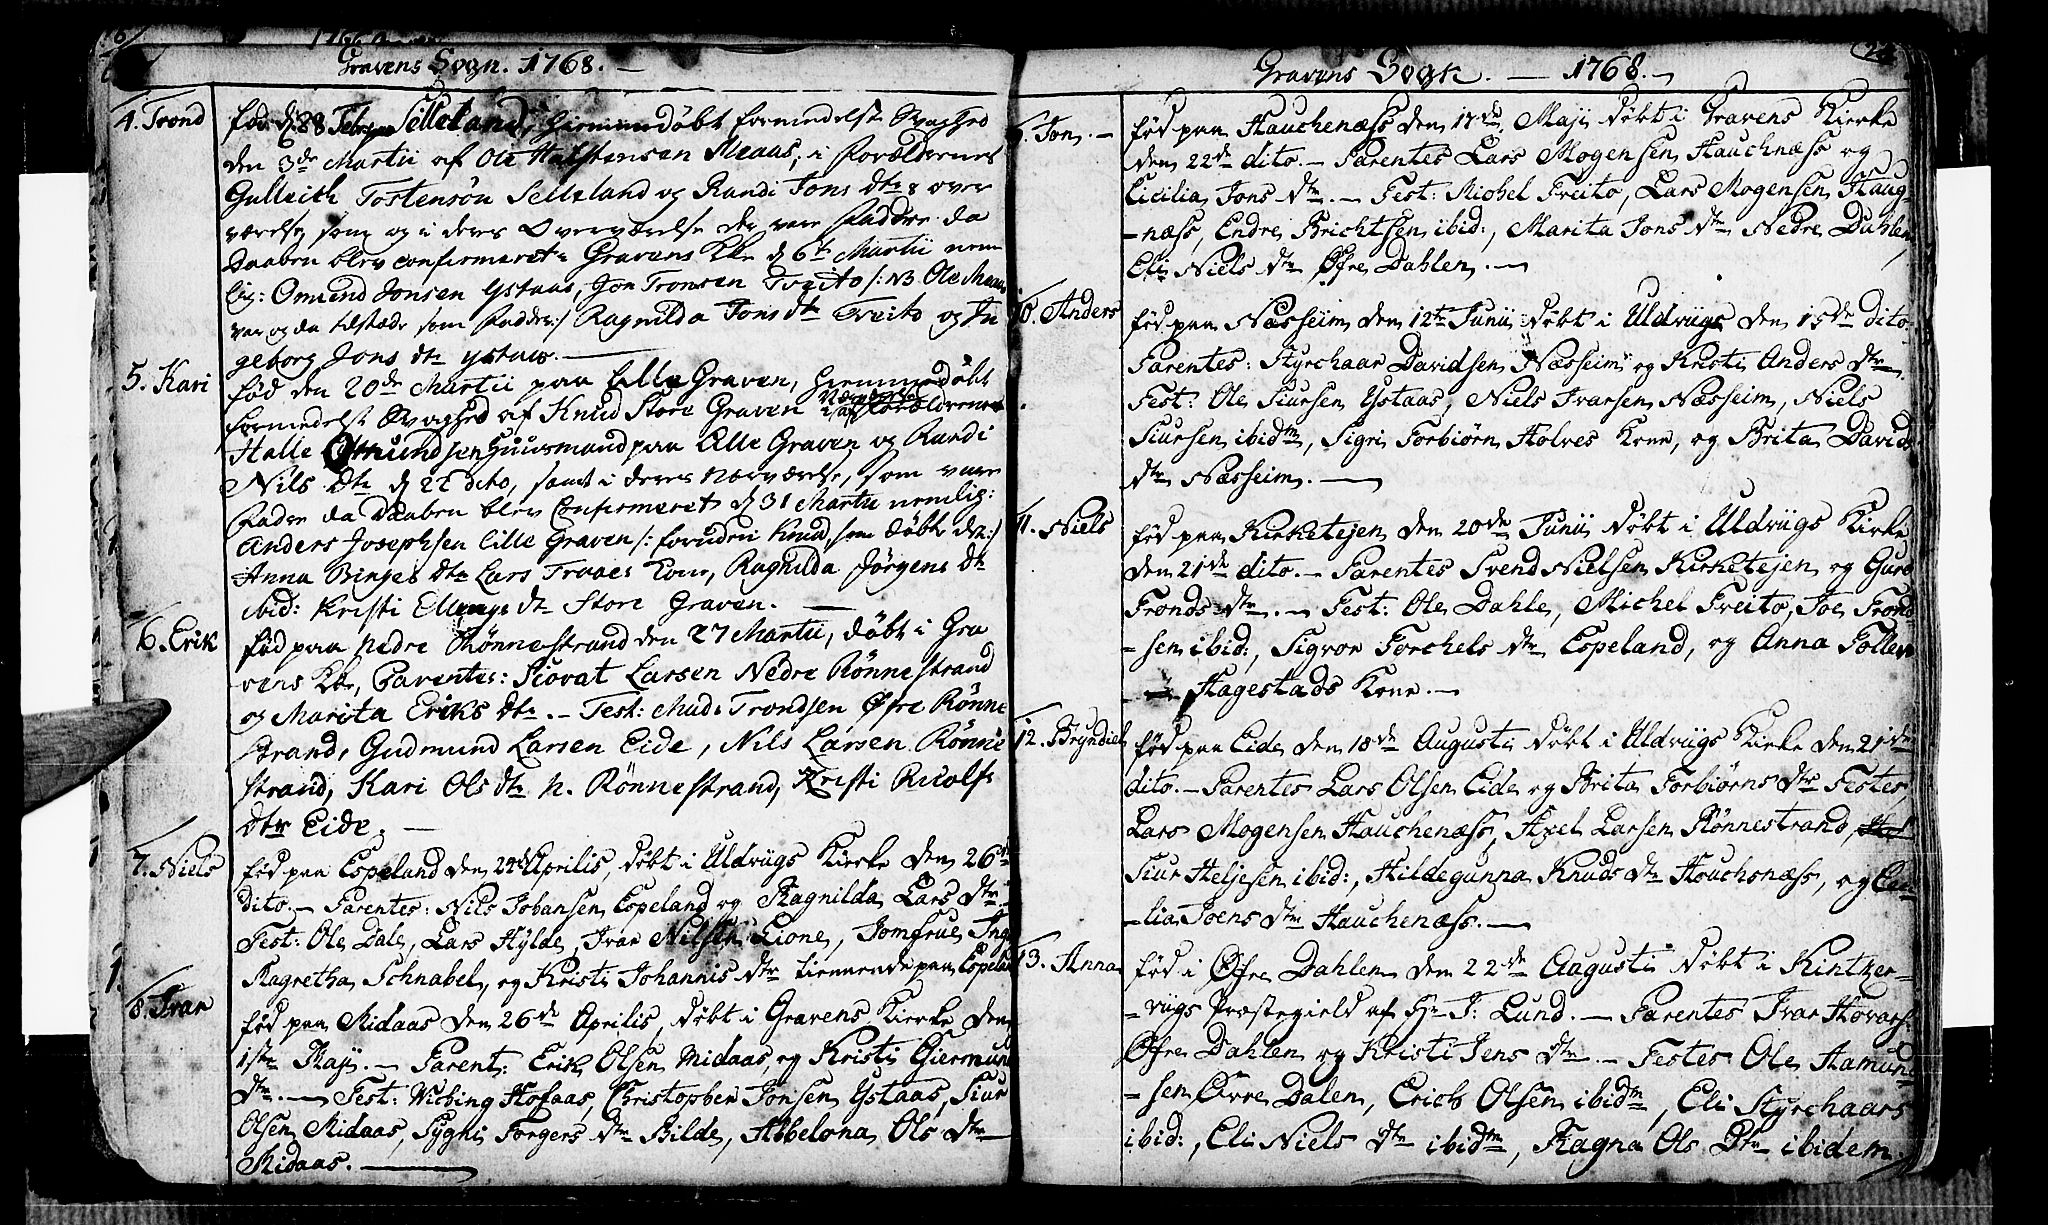 Gravens Sogn. 1768. —
4. Trond
fød d. 28 Febru Selleland, hiemmedøbt formedelst Svaghed
den 3de Martii af Ole Halstensen Meaas, i Forældrenes
Gulleith Tostensøn Selleland og Randi Jons dtr over
værelse som og i deres Overværelse der vare Faddre da
Daaben blev confirmeret i Gravens Kke d 6te Martii nem
lig: Omund Jonsen Ystaas, Jon Tronsen Treito /: NB Ole Meaas
var og da tilstæde som Fadder :/ Ragnilda Jons dtr Treito og In
geborg Jons dtr ystaas. —
5. Kari
fød den 20de Martii paa Lille Graven, hiemmedøbt
formedelst Svaghed af Knud Store Graven i Forældrenes
Halle Omundsen Huusmand paa Lille Graven og Randi
Nils dtr d 22 dito, samt i deres nærværelse, som vare
Faddre da Daaben blev Confirmeret d 31 Martii nemlig:
Anders Josephsen Lille Graven /: foruden Knud, som døbte det :/
Anna Binges dtr Lars Traaes Kone, Ragnilda Jørgens dtr
ibid: Kristi Ellings dtr Store Graven. —
6. Erik
fød paa nedre Rønnestrand den 27 Martii, døbt i Gra
vens Kke, Parentes: Siovat Larsen Nedre Rønnestrand
og Marita Eriks dtr. — Test: Mads Trondsen Øfre Rønne
strand, Gudmund Larsen Eide, Nils Larsen Rønne
strand, Kari Ols dtr N. Rønnestrand, Kristi Ricolfs
dtr Eide. —
7. Niels
fød paa Espeland den 24de Aprilis, døbt i Uldvigs Kierke den 26de
dito. — Parentes: Nils Johansen Espeland og Ragnilda Lars dtr. —
Test: Ole Dale, Lars Hylde, Ivar Nilsen Lione, Jomfrue Ing
Magretha Schnabel, og Kristi Johannis dtr tiennende paa Espeland
8. Ivar
fød paa Midaas den 26de Aprilis, døbt i Gravens Kierke den
1ste Maji. — Parent: Erik Olsen Midaas, og Kristi Giermund
dtr. — Test: Wiching Hofaas, Christopher Jonsen Ystaas, Siur
Olsen Midaas, Sygni Torgers dtr Bilde, Abbelona Ols dtr
Midaas. —
Gravens Sogn. — 1768. —
9. Jon. —
fød paa Hauchenæss den 17de Maji døbt i Gravens Kierke
den 22de dito. — Parentes Lars Mogensen Hauchnæss og
Cicilia Jons dtr. — Test: Michel Treito, Lars Mogensen Haug-
-næss, Endre Brichtsen ibid:, Marita Jons dtr Nedre Dahlen,
Eli Niels dtr Øfre Dahlen. —
10. Anders
fød paa Næsseim den 12te Junii døbt i Uldvigs den 15de dito.
Parentes: Styrchaar Davidsen Næsseim og Kristi Anders dtr.
Test: Ole Siursen Ystaas, Niels Ivarsen Næsseim, Niels
Siursen ibidm, Sigri Torbiørn Holves Kone, og Brita Davids
dtr Næsseim. —
11. Niels
fød paa Kirketejen den 20de Junii døbt i Uldvigs Kirke
den 21de dito. — Parentes Svend Nielsen Kirketejen og Guro
Tronds dtr. — Test: Ole Dahle, Michel Treito, Joe Trond
-sen ibid:, Sigvor Torchels dtr Espeland, og Anna Tollev
Hagestads Kone. —
12. Bryndiel
fød paa Eide den 18de Augusti døbt i Uldvigs Kirke den 21de
dito. — Parentes Lars Olsen Eide og Brita Torbiørns dtr Testes
Lars Mogensen Hauchenæss, Axel Larsen Rønnestrand,
Siur Heljesen ibid:, Hildegunna Knuds dtr Houchsnæss, og Cei-
-lia Joens dtr Hauchenæss. —
13. Anna
fød i Øfre Dahlen den 22de Augusti døbt i Kintzer-
-vigs Præstegield af Hr J: Lund. — Parentes Ivar Hovars:
Øfre Dahlen og Kristi Jens dtr. — Testes Ole Aamund-
-sen Øvre Dalen, Erich Olsen ibidm, Eli Styrchaars
ibid:, Eli Niels dtr ibidm, Ragna Ols Dtr ibidem.